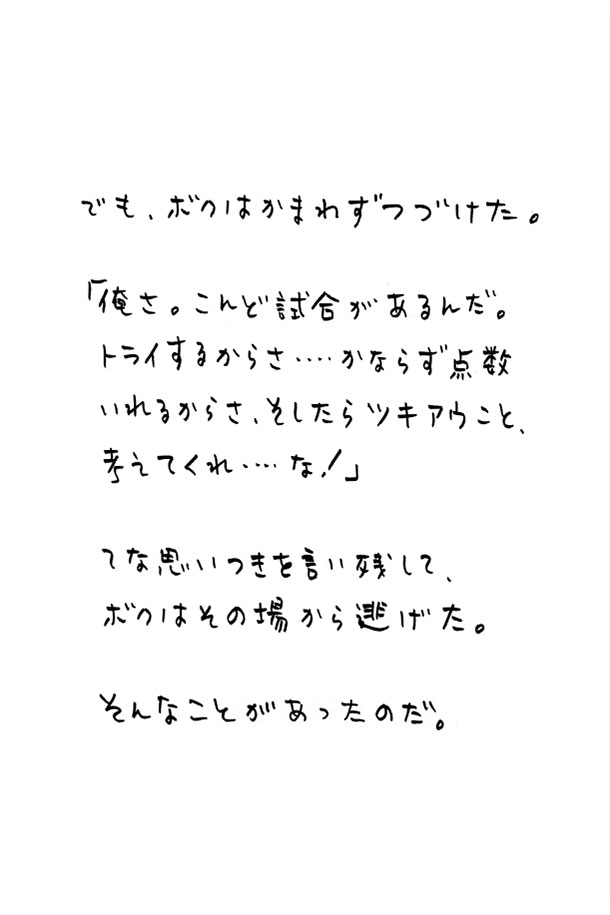 でも、ボクはかまわずつづけた。
「俺さ。こんど試合があるんだ。
トライするからさ‥‥かならず点数
いれるからさ、そしたらツキアウこと、
考えてくれ‥‥な!」
てな思いつきを言い残して、
ボクはその場から逃げた。
そんなことがあったのだ。